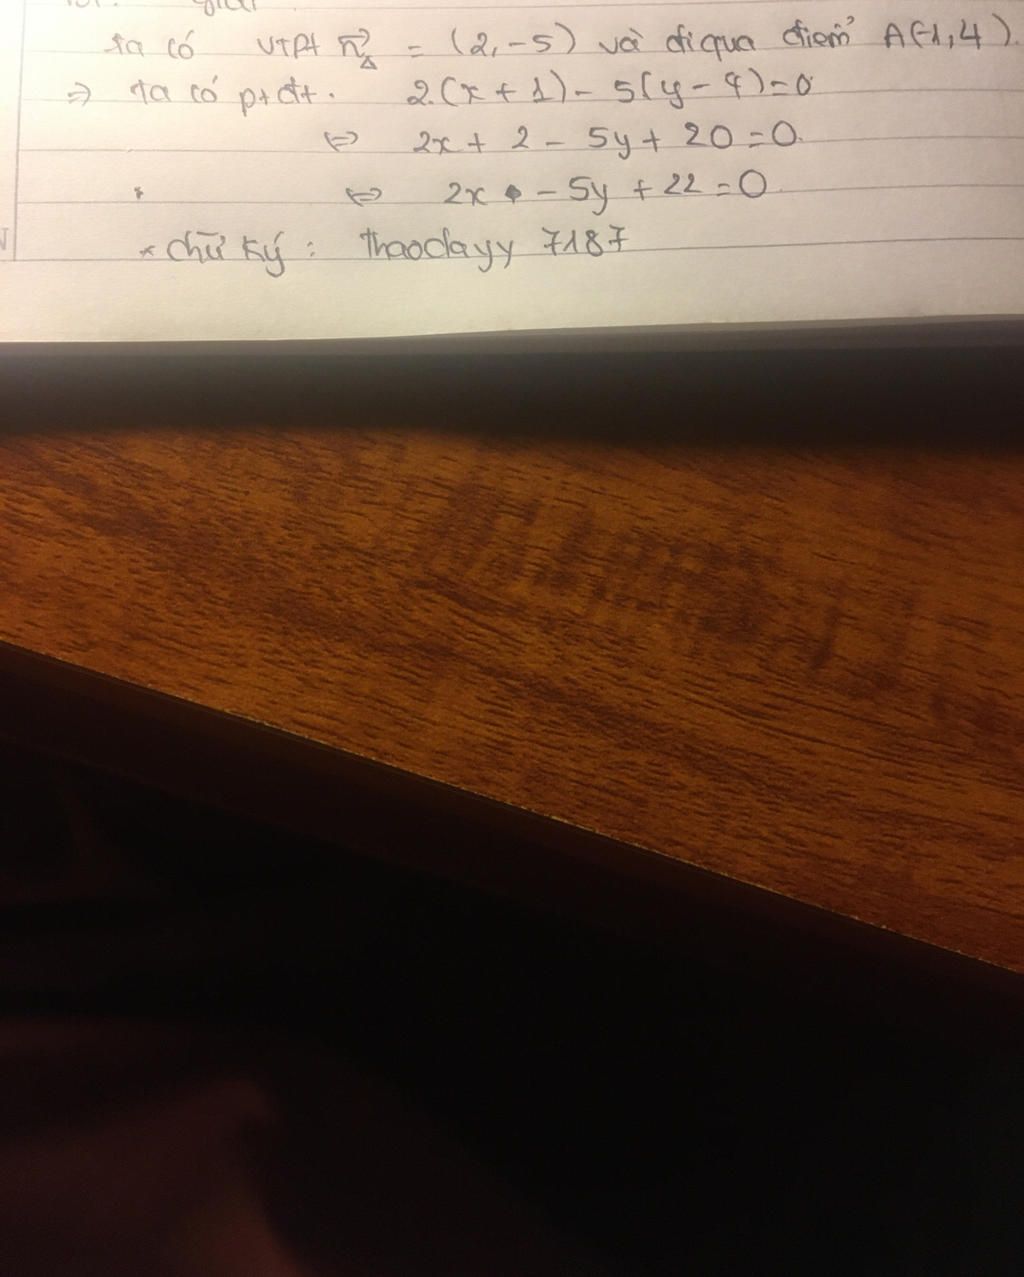 giải
ta có VTPT n⃗Δ = (2,-5) và đi qua điểm A(-1,4).
=> ta có ptđt. 2.(x + 1) - 5(y - 4)=0
<=> 2x + 2 - 5y + 20 = 0.
<=> 2x - 5y + 22 = 0.
* chữ ký : thaoclayy 7187